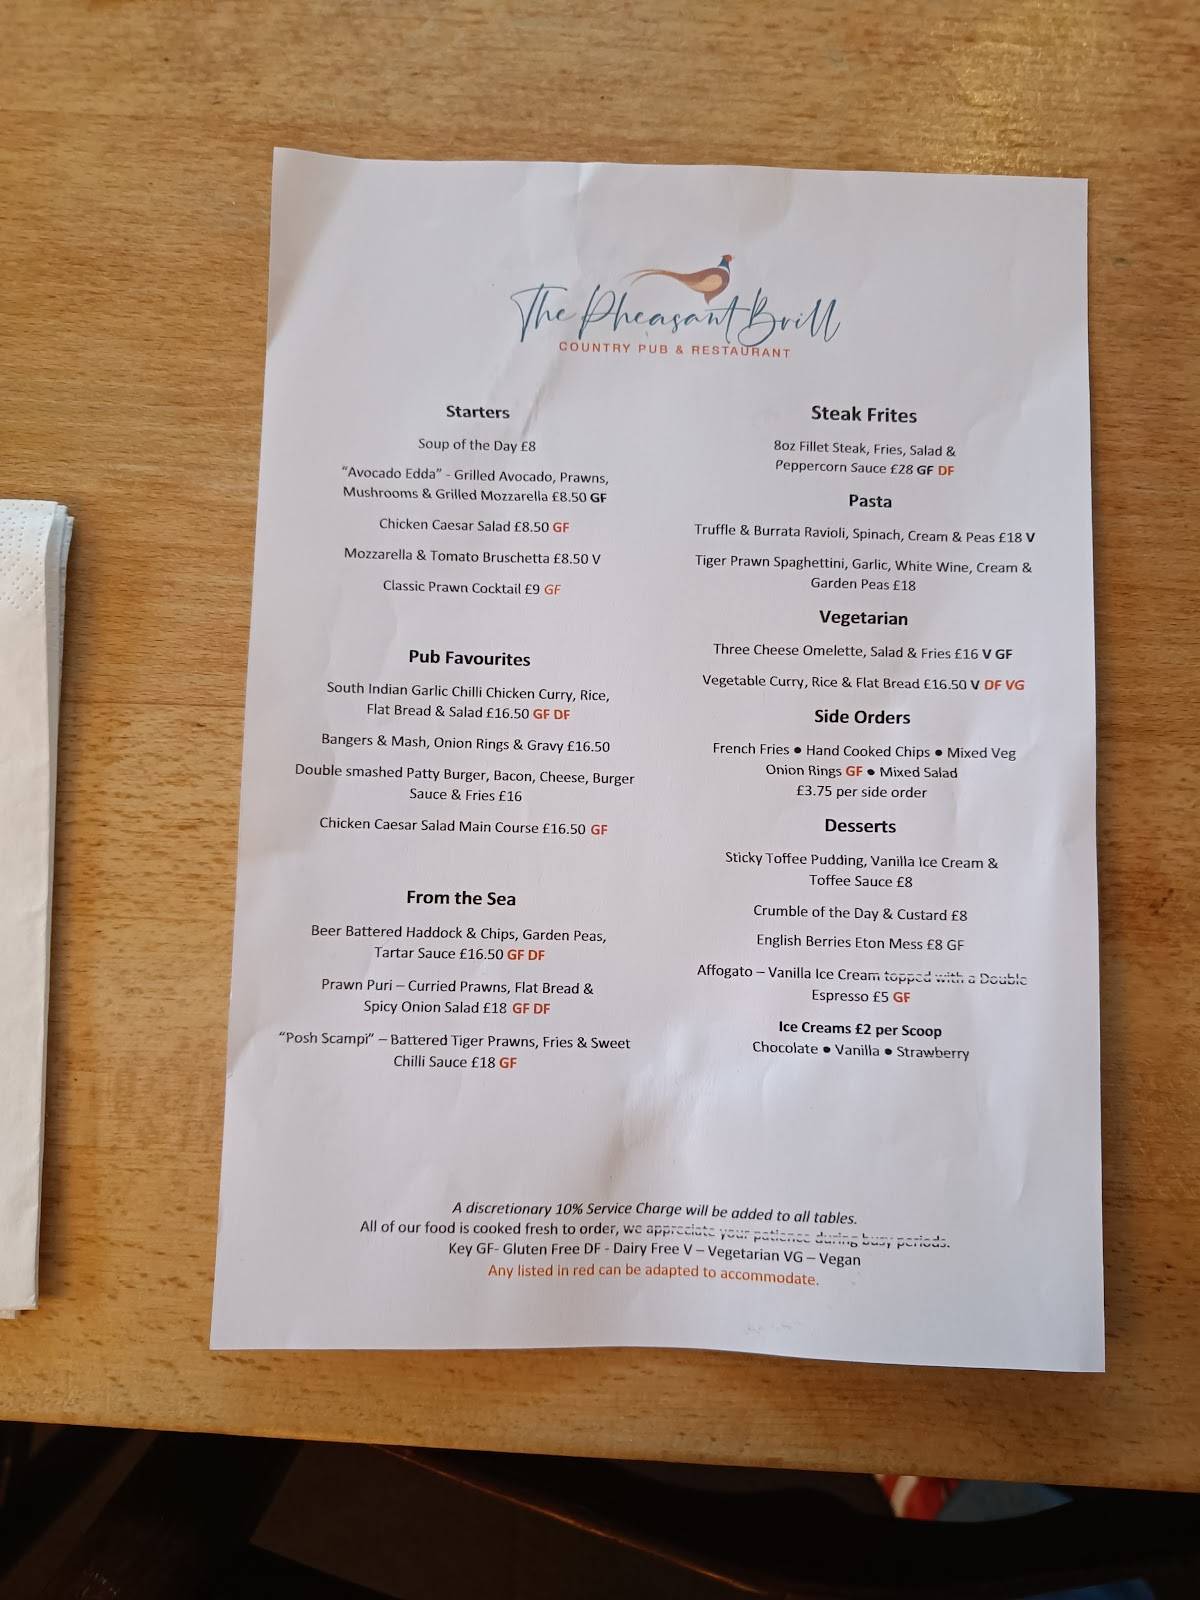 The Pheasant Brill
COUNTRY PUB & RESTAURANT
Starters
Soup of the Day £8
“Avocado Edda” - Grilled Avocado, Prawns,
Mushrooms & Grilled Mozzarella £8.50 GF
Chicken Caesar Salad £8.50 GF
Mozzarella & Tomato Bruschetta £8.50 V
Classic Prawn Cocktail £9 GF
Pub Favourites
South Indian Garlic Chilli Chicken Curry, Rice,
Flat Bread & Salad £16.50 GF DF
Bangers & Mash, Onion Rings & Gravy £16.50
Double smashed Patty Burger, Bacon, Cheese, Burger
Sauce & Fries £16
Chicken Caesar Salad Main Course £16.50 GF
From the Sea
Beer Battered Haddock & Chips, Garden Peas,
Tartar Sauce £16.50 GF DF
Prawn Puri – Curried Prawns, Flat Bread &
Spicy Onion Salad £18 GF DF
“Posh Scampi” – Battered Tiger Prawns, Fries & Sweet
Chilli Sauce £18 GF
Steak Frites
8oz Fillet Steak, Fries, Salad &
Peppercorn Sauce £28 GF DF
Pasta
Truffle & Burrata Ravioli, Spinach, Cream & Peas £18 V
Tiger Prawn Spaghettini, Garlic, White Wine, Cream &
Garden Peas £18
Vegetarian
Three Cheese Omelette, Salad & Fries £16 V GF
Vegetable Curry, Rice & Flat Bread £16.50 V DF VG
Side Orders
French Fries ● Hand Cooked Chips ● Mixed Veg
Onion Rings GF ● Mixed Salad
£3.75 per side order
Desserts
Sticky Toffee Pudding, Vanilla Ice Cream &
Toffee Sauce £8
Crumble of the Day & Custard £8
English Berries Eton Mess £8 GF
Affogato – Vanilla Ice Cream topped with a Double
Espresso £5 GF
Ice Creams £2 per Scoop
Chocolate ● Vanilla ● Strawberry
A discretionary 10% Service Charge will be added to all tables.
All of our food is cooked fresh to order, we appreciate your patience during busy periods.
Key GF- Gluten Free DF - Dairy Free V – Vegetarian VG – Vegan
Any listed in red can be adapted to accommodate.